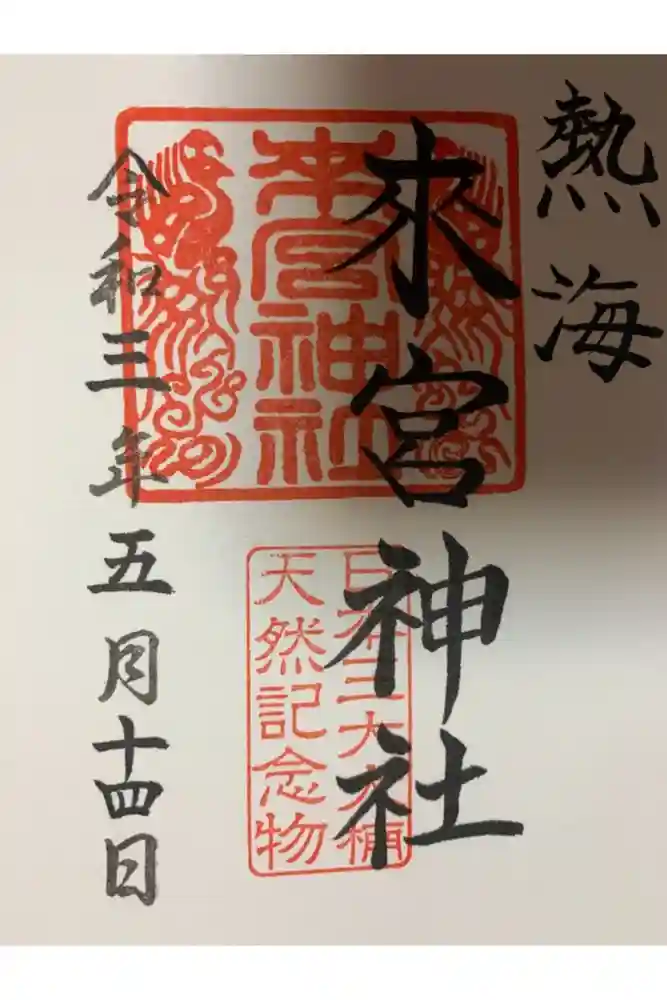 熱海
來宮神社
来宮神社
日本三大大楠
天然記念物
令和三年五月十四日